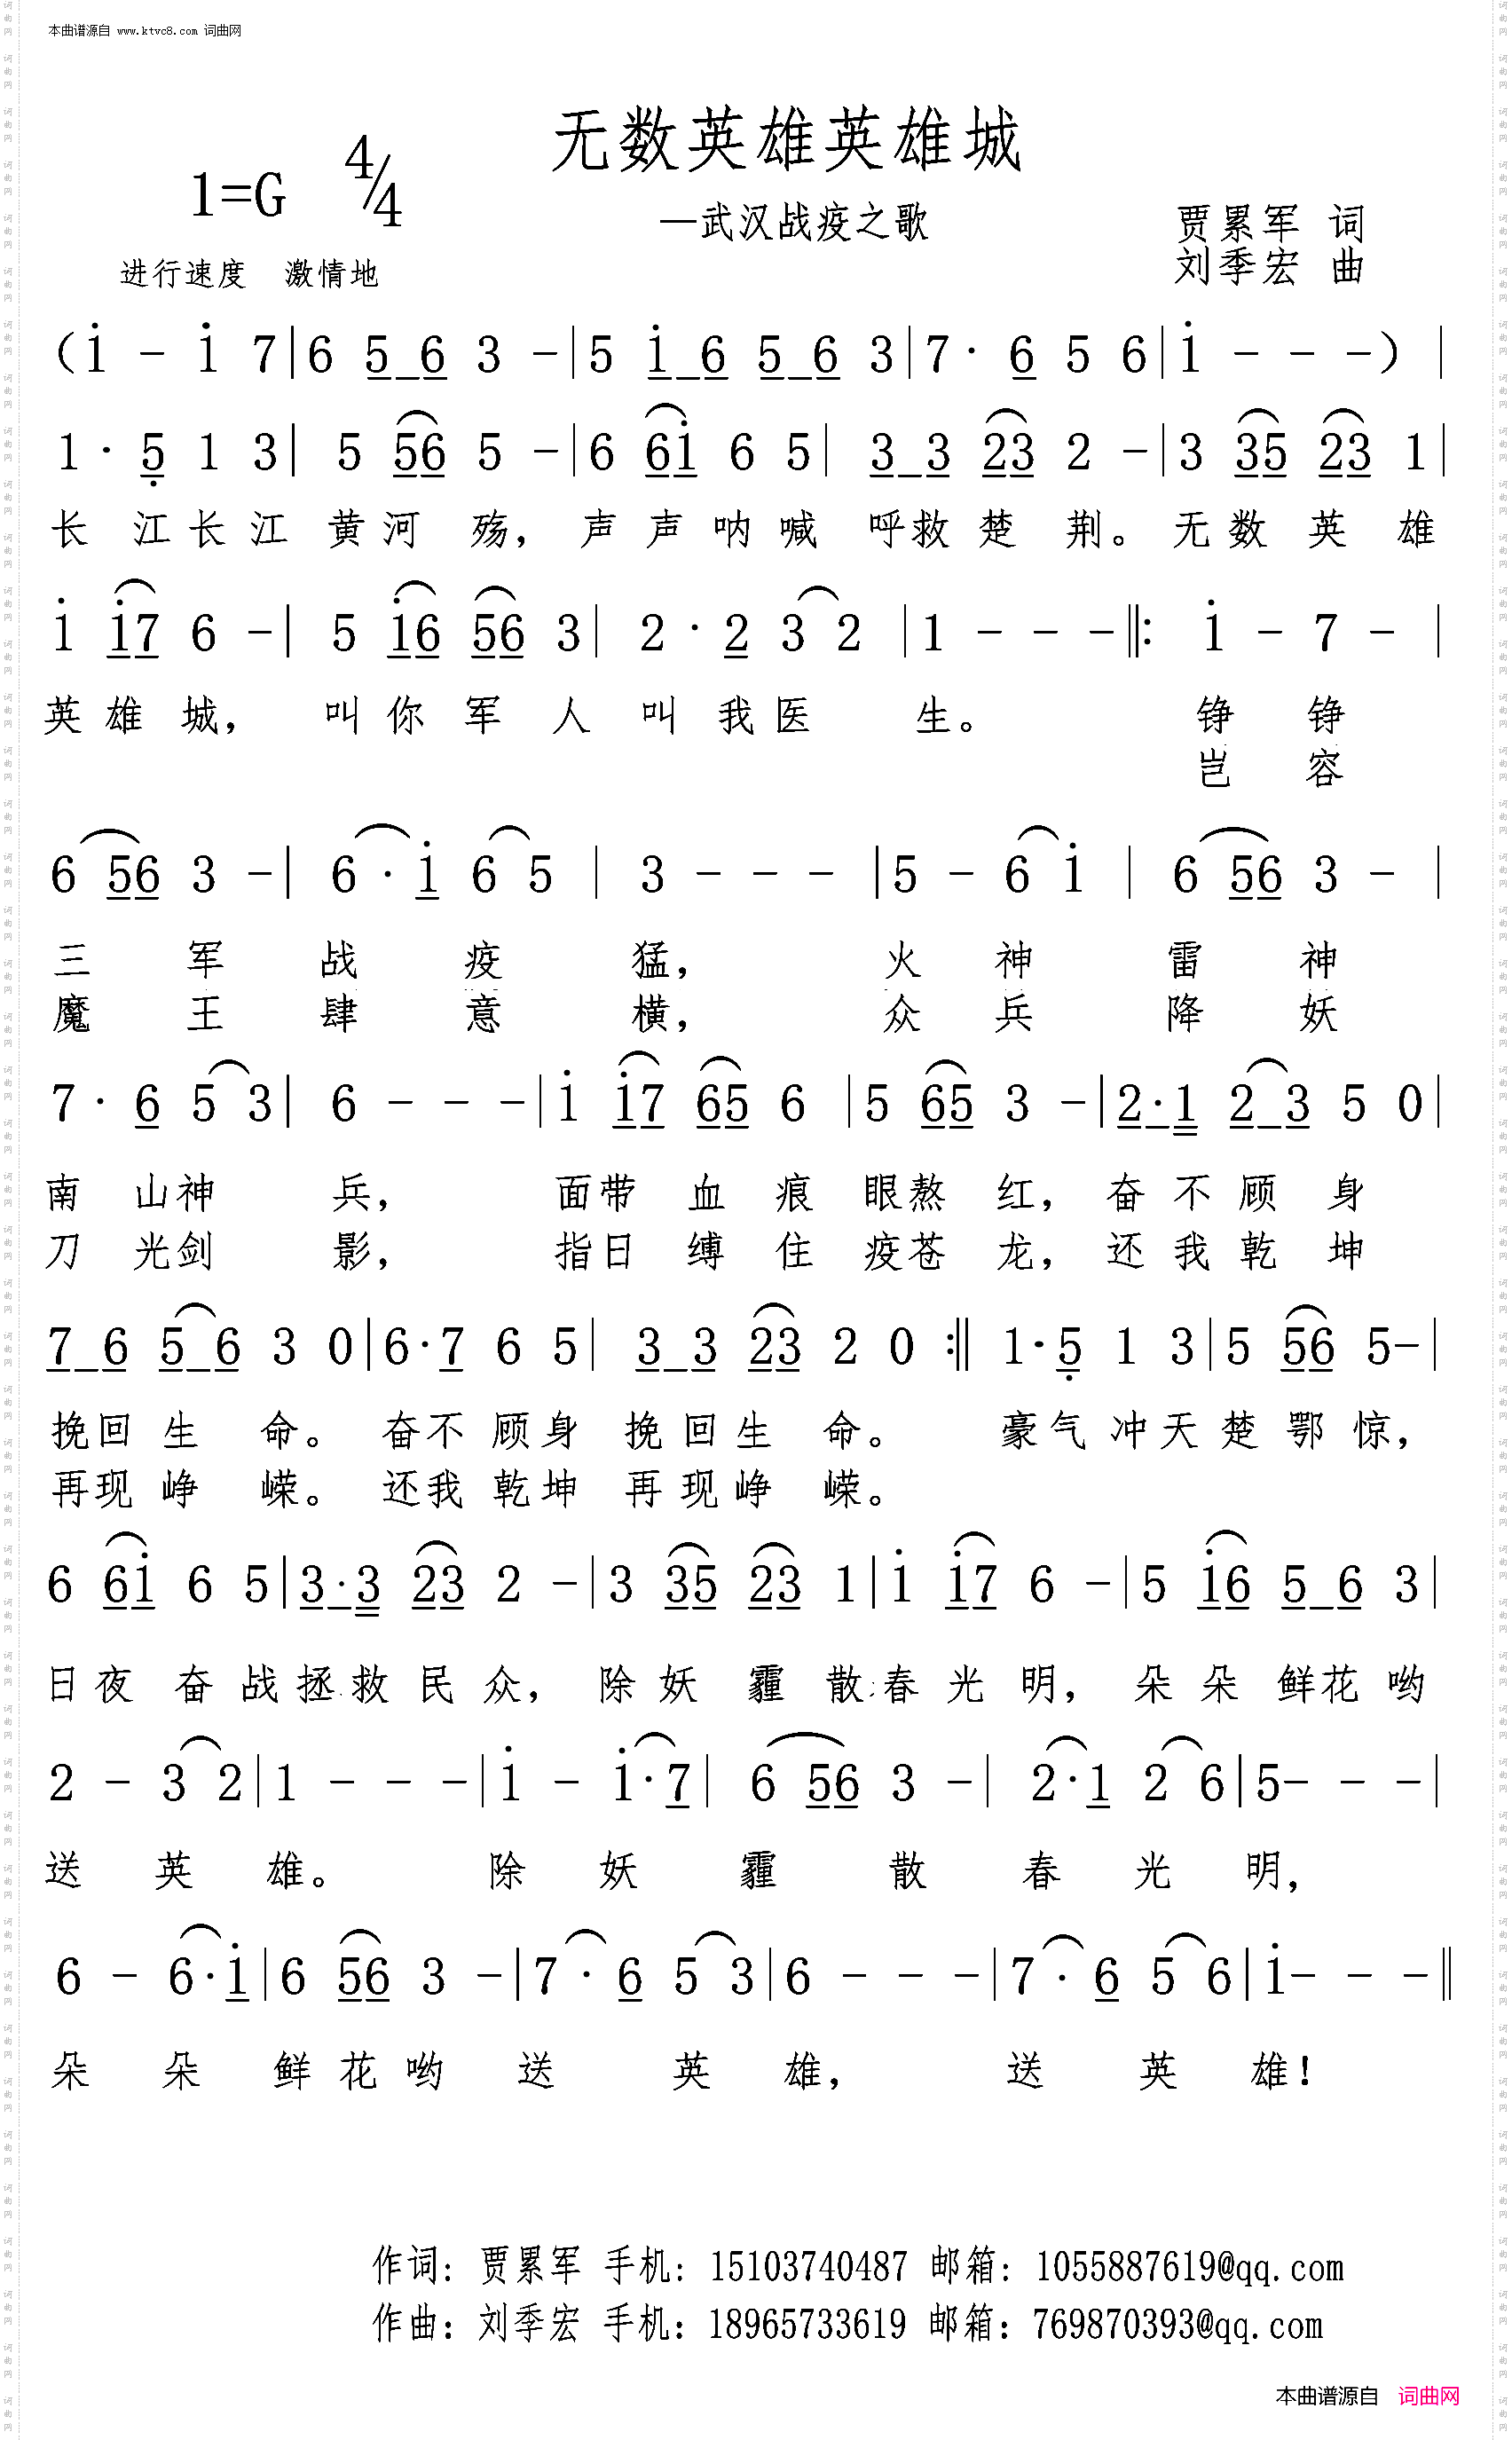 本曲谱源自 www.ktvc8.com 词曲网
无数英雄英雄城
1=G 4/4
—武汉战疫之歌
贾累军 词
进行速度 激情地
刘季宏 曲
(i - i 7|6 5 6 3 -|5 i 6 5 6 3|7· 6 5 6|i - - -)|
1· 5 1 3| 5 56 5 -|6 6i 6 5| 3 3 23 2 -|3 35 23 1|
长江长江黄河殇，声声呐喊呼救楚荆。无数英雄
i i7 6 -| 5 i6 56 3| 2· 2 3 2 |1 - - -‖: i - 7 -|
英雄城，叫你军人叫我医生。 铮铮
岂容
6 56 3 -| 6·i 6 5 | 3 - - - |5 - 6 i | 6 56 3 - |
三军战疫猛，火神雷神
魔王肆意横，众兵降妖
7· 6 5 3| 6 - - -|i i7 65 6 |5 65 3 -|2·1 2 3 5 0|
南山神兵，面带血痕眼熬红，奋不顾身
刀光剑影，指日缚住疫苍龙，还我乾坤
7 6 5 6 3 0|6·7 6 5| 3 3 23 2 0 :‖ 1·5 1 3|5 56 5-|
挽回生命。奋不顾身挽回生命。 豪气冲天楚鄂惊，
再现峥嵘。还我乾坤再现峥嵘。
6 6i 6 5|3·3 23 2 -|3 35 23 1|i i7 6 -|5 i6 5 6 3|
日夜奋战拯救民众，除妖霾散春光明，朵朵鲜花哟
2 - 3 2|1 - - -|i - i·7| 6 56 3 -| 2·1 2 6|5- - -|
送英雄。 除妖霾散春光明，
6 - 6·i|6 56 3 -|7· 6 5 3|6 - - -|7· 6 5 6|i- - -‖
朵朵鲜花哟送英雄，送英雄！
作词：贾累军 手机：15103740487 邮箱：1055887619@qq.com
作曲：刘季宏 手机：18965733619 邮箱：769870393@qq.com
本曲谱源自 词曲网